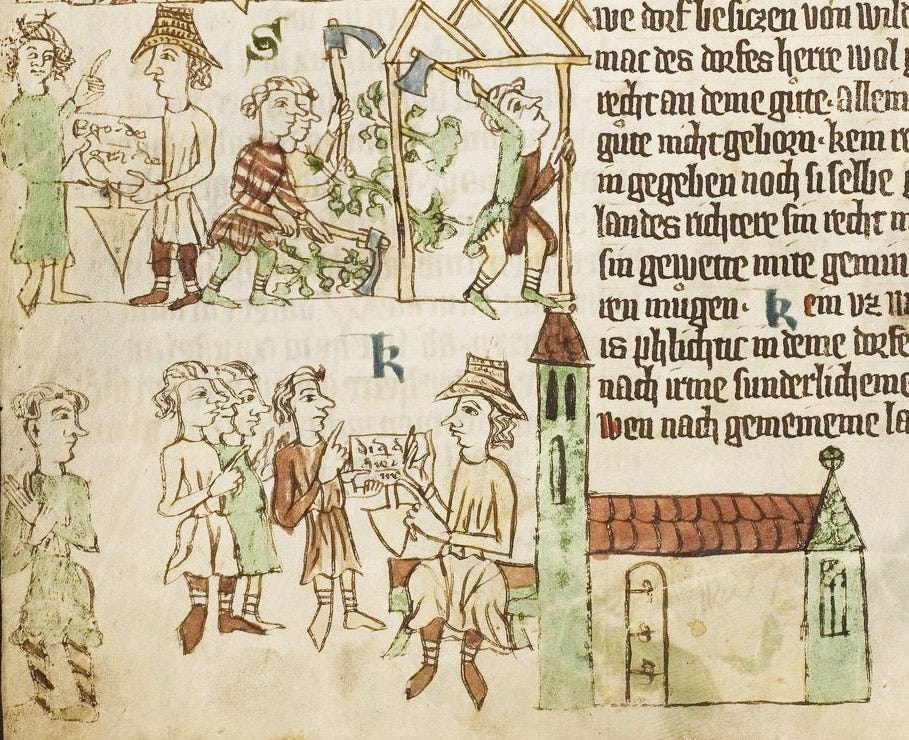 S
we dorf besiczen von wild
mac des dorfes herre wol
recht an deme gůte · allem
gůte nicht geborn · kem
in gegeben noch si selbe
landes richtere sin recht
sin gewette mite gemin
ren můgen · k em vz
is phlichtic in deme dorfe
nach irme sunderlicheme
wen nach gemeineme la
Ego dei
k